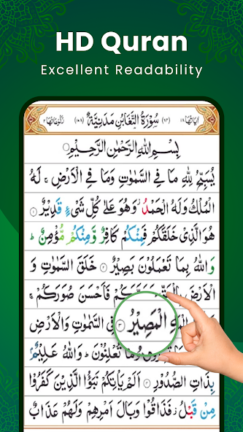 HD Quran
Excellent Readability
سُوْرَةُ التَّغَابُنِ مَدَنِيَّةٌ
بِسْمِ اللّٰهِ الرَّحْمٰنِ الرَّحِيْمِ
يُسَبِّحُ لِلّٰهِ مَا فِي السَّمٰوٰتِ وَمَا فِي الْاَرْضِ ۚ لَهُ
الْمُلْكُ وَلَهُ الْحَمْدُ وَهُوَ عَلٰى كُلِّ شَيْءٍ قَدِيْرٌ
هُوَ الَّذِيْ خَلَقَكُمْ فَمِنْكُمْ كَافِرٌ وَّمِنْكُمْ مُّؤْمِنٌ
وَاللّٰهُ بِمَا تَعْمَلُوْنَ بَصِيْرٌ خَلَقَ السَّمٰوٰتِ وَ
الْاَرْضَ فَاَحْسَنَ صُوَرَكُمْ
الْمَصِيْرُ فِي السَّمٰوٰتِ وَالْاَرْضِ
تُعْلِنُوْنَ وَاللّٰهُ عَلِيْمٌ
بِذَاتِ الصُّدُوْرِ اَلَمْ يَاْتِكُمْ نَبَؤُا الَّذِيْنَ كَفَرُوْا
مِنْ قَبْلُ فَذَاقُوْا وَبَالَ اَمْرِهِمْ وَلَهُمْ عَذَابٌ